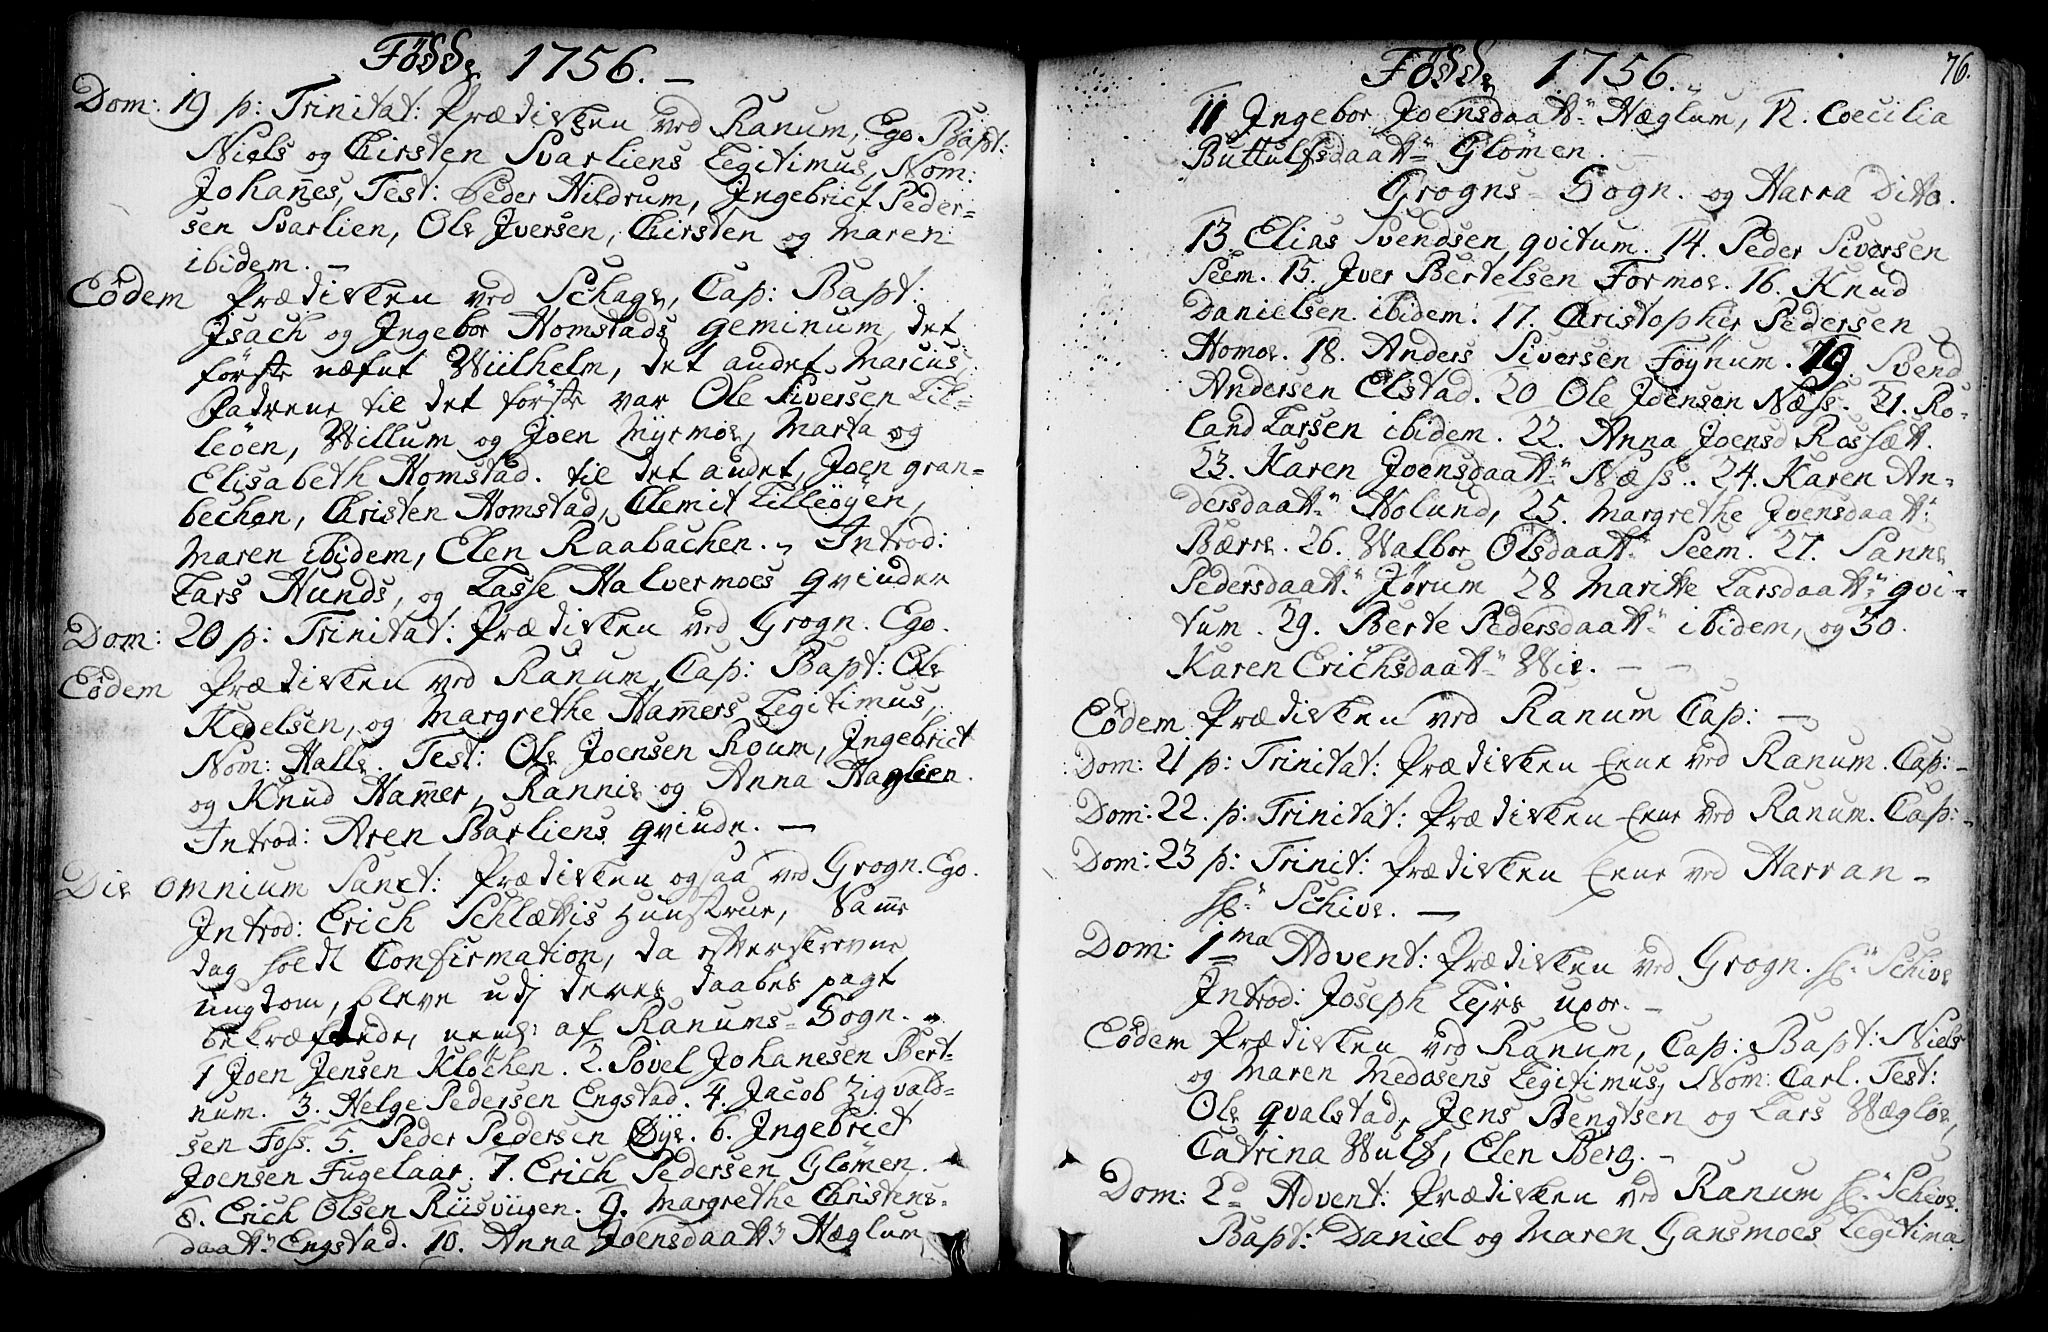 Födde 1756. –
Dom: 19 p: Trinitat: Prædiken ved Ranum, Ego. Bapt:
Niels og Kirsten Svarliens Legitimus, Nom:
Johan̄es, Test: Peder Hildrum, Ingebrict Peder=
sen Svarlien, Ole Iversen, Kirsten og Maren
ibidem. –
Eodem Prædiken ved Schage, Cap: Bapt:
Isach og Ingebor Homstads geminum, det
förste næfnt Wiilhelm, det andet Marcus,
Padrene til det förste var Ole Siversen Lil=
leöen, Willum og Joen Myrmoe, Marta og
Elisabeth Homstad. til det andet, Joen gran=
bechen, Christen Homstad, Clemit Lilleöyen,
Maren ibidem, Elen Raabachen. – Introd:
Lars Hunds, og Lasse Halvermoes qvinder
Dom: 20 p: Trinitat: Prædiken ved Grogn. Ego.
Eodem Prædiken ved Ranum, Cap: Bapt: Ole
Kedelsen, og Margrethe Ham̄ers Legitimus,
Nom: Halle. Test: Ole Joensen Roum, Ingebrict
og Knud Ham̄er, Rannie og Anna Haglien.
Introd: Aren Barliens qvinde. –
Die omnium Sanct: Prædiken ogsaa ved Grogn. Ego.
Introd: Erich Schlættis Hunstrue, Sam̄e
dag holdt Confirmation, da efterskrevne
ungdom, bleve udj deres daabes pagt
bekræftede, neml: af Ranums = Sogn.
1 Joen Jensen Klöchen. 2. Povel Johanesen Bert=
num. 3. Helge Pedersen Engstad. 4. Jacob Zigvald=
sen Foss. 5. Peder Pedersen Öÿe. 6. Ingebrict
Joensen Fugelaar. 7. Erich Pedersen Glömen.
8. Erich Olsen Riisviigen. 9. Margrethe Christens=
daatt" Engstad. 10. Anna Joensdaatt" Hæglum
Födde 1756. 76.
11 Ingebor Joensdaatt" Hæglum, 12. Coecilia
Buttulfsdaatt" Glömen. –
Grogns = Sogn. og Harra Ditto.
13 Elias Svendsen qvitum. 14. Peder Siversen
Seem. 15. Iver Bertelsen Formoe. 16. Knud
Danielsen ibidem. 17. Christopher Pedersen
Homoe. 18. Anders Siversen Föynum. 19. Svend
Andersen Elstad. 20 Ole Joensen Næss. 21. Ro=
land Larsen ibidem. 22. Anna Joensd Rossæt.
23. Karen Joensdaatt" Næss. 24. Karen An=
dersdaatt" Holund, 25. Margrethe Joensdaatt"
Bærre. 26. Walbor Olsdaatt" Seem. 27. Sanne
Pedersdaatt" Jörum 28 Maritte Larsdaatt" qvi=
tum. 29. Berte Pedersdaatt" ibidem, og 30.
Karen Erichsdaatt" Wie. – –
Eodem Prædiken ved Ranum Cap: –
Dom: 21 p: Trinitat: Prædiken Eene ved Ranum. Cap: –
Dom: 22. p: Trinitat: Prædiken Eene ved Ranum. Cap: –
Dom: 23 p: Trinit: Prædiken Eene ved Harran –
hr" Schive. –
Dom: 1ma Advent: Prædiken ved Grogn. hr" Schive
Introd: Joseph Lejrs uxor. –
Eodem Prædiken ved Ranum, Cap: Bapt: Niels
og Maren Medaasens Legitimus, Nom: Carl. Test:
Ole qvalstad, Jens Bengtsen og Lars Wægloe,
Catrina Wulf, Elen Berg. –
Dom: 2d Advent: Prædiken ved Ranum hr" Schive.
Bapt: Daniel og Maren Gansmoes Legitima